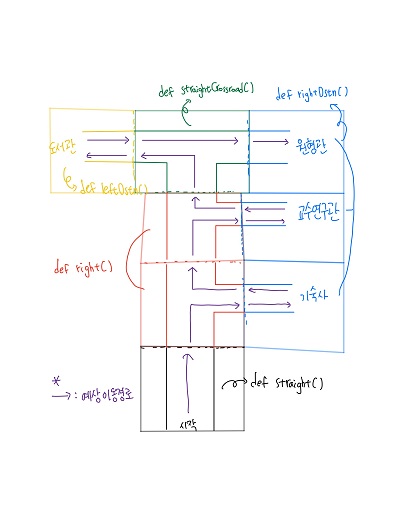 def straightCrossroad()
def rightDstn()
도서관
원형관
def leftDstn()
교수연구관
def right()
기숙사
*
→ : 예상이동경로
def straight()
시작